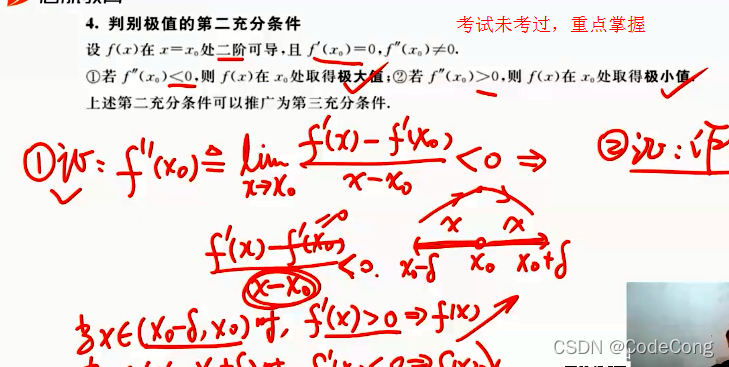 4. 判别极值的第二充分条件
考试未考过，重点掌握
设 f(x)在 x=x₀处二阶可导,且 f′(x₀)=0,f″(x₀)≠0.
①若 f″(x₀)<0,则 f(x)在 x₀处取得极大值;②若 f″(x₀)>0,则 f(x)在 x₀处取得极小值.
上述第二充分条件可以推广为第三充分条件.
①证: f″(x₀) ≜ lim x→x₀ f′(x)-f′(x₀) / x-x₀ <0 ⇒
②证:
f′(x)-f′(x₀) =0 / x-x₀ <0.
x₀-δ x₀ x₀+δ
当x∈(x₀-δ,x₀)时, f′(x)>0 ⇒ f(x)
CSDN @CodeCong